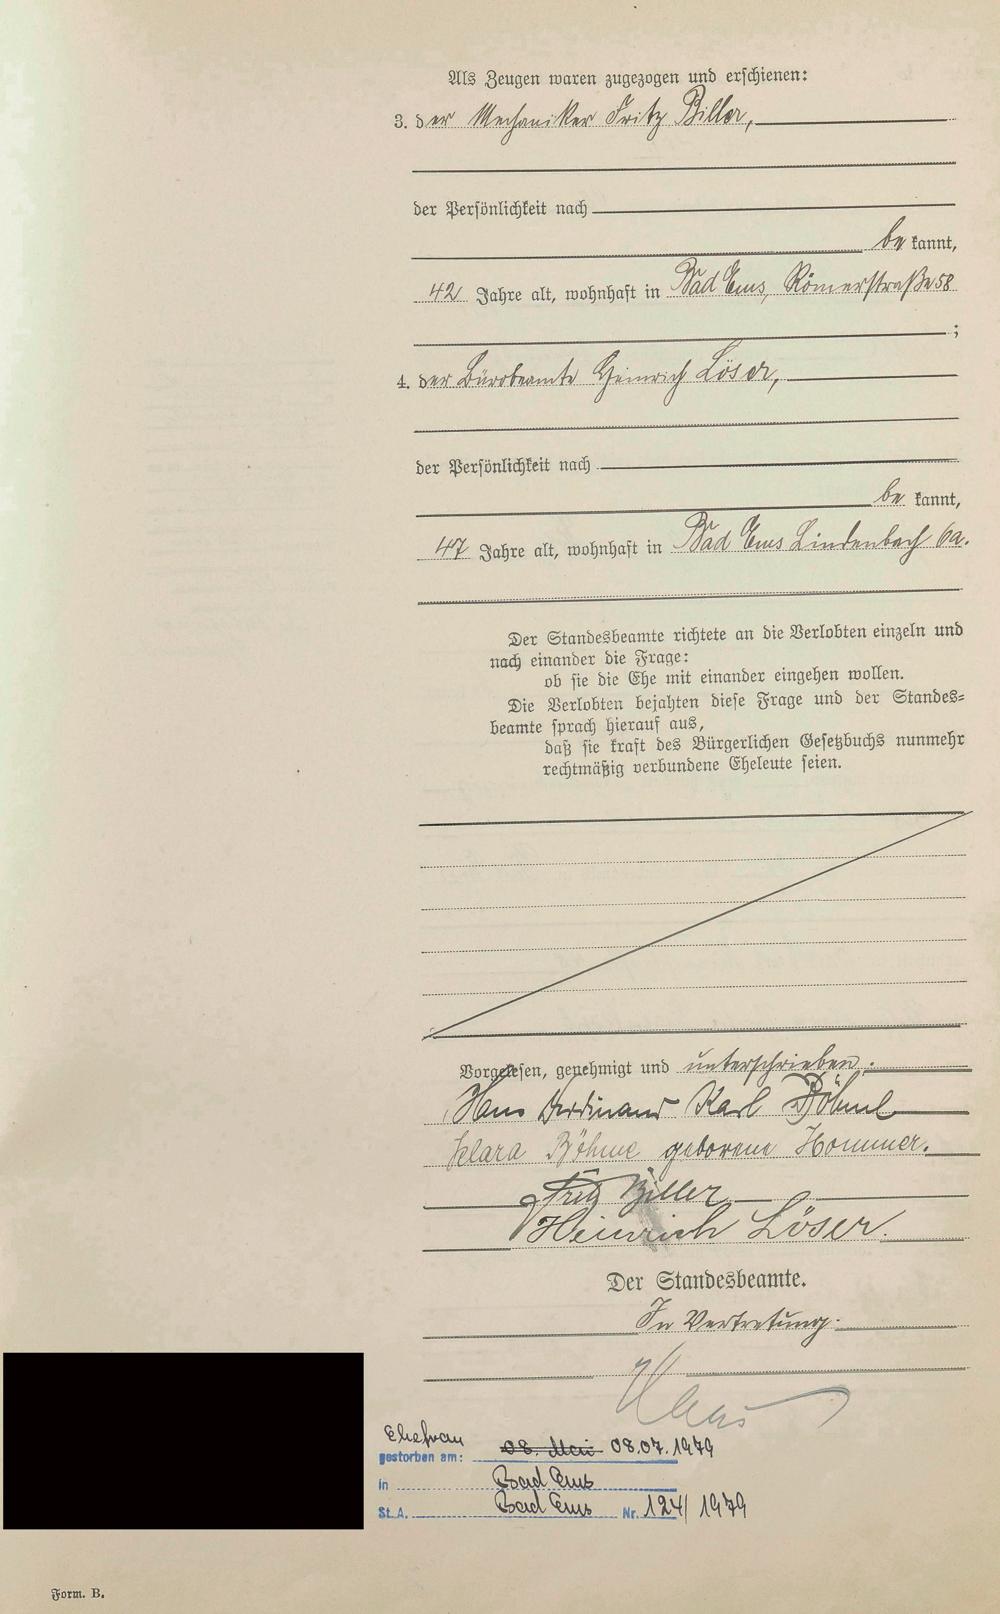 Als Zeugen waren zugezogen und erschienen:
3. der Mechaniker Fritz Biller,
der Persönlichkeit nach
be kannt,
42 Jahre alt, wohnhaft in Bad Ems, Römerstraße 58
;
4. der Bürobeamte Heinrich Löser,
der Persönlichkeit nach
be kannt,
47 Jahre alt, wohnhaft in Bad Ems Lindenbach 6a.
Der Standesbeamte richtete an die Verlobten einzeln und
nach einander die Frage:
ob sie die Ehe mit einander eingehen wollen.
Die Verlobten bejahten diese Frage und der Standes=
beamte sprach hierauf aus,
daß sie kraft des Bürgerlichen Gesetzbuchs nunmehr
rechtmäßig verbundene Eheleute seien.
Vorgelesen, genehmigt und unterschrieben.
Hans Ferdinand Karl Böhme
Klara Böhme geborene Hommer.
Fritz Biller
Heinrich Löser.
Der Standesbeamte.
In Vertretung.
Ehefrau
gestorben am: 08. Mai 08.07.1979
in Bad Ems
St. A. Bad Ems Nr. 124/1979
Form. B.